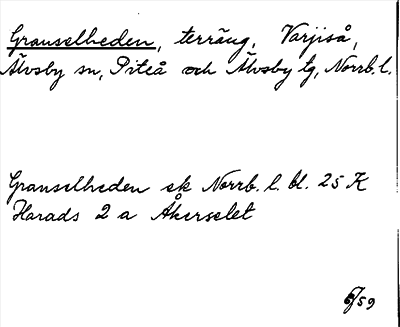 Granselheden, terräng, Varjiså,
Älvsby sn, Piteå och Älvsby tg, Norrb. l.
Granselheden ek Norrb. l. bl. 25 K
Harads 2 a Åkerselet
6/59